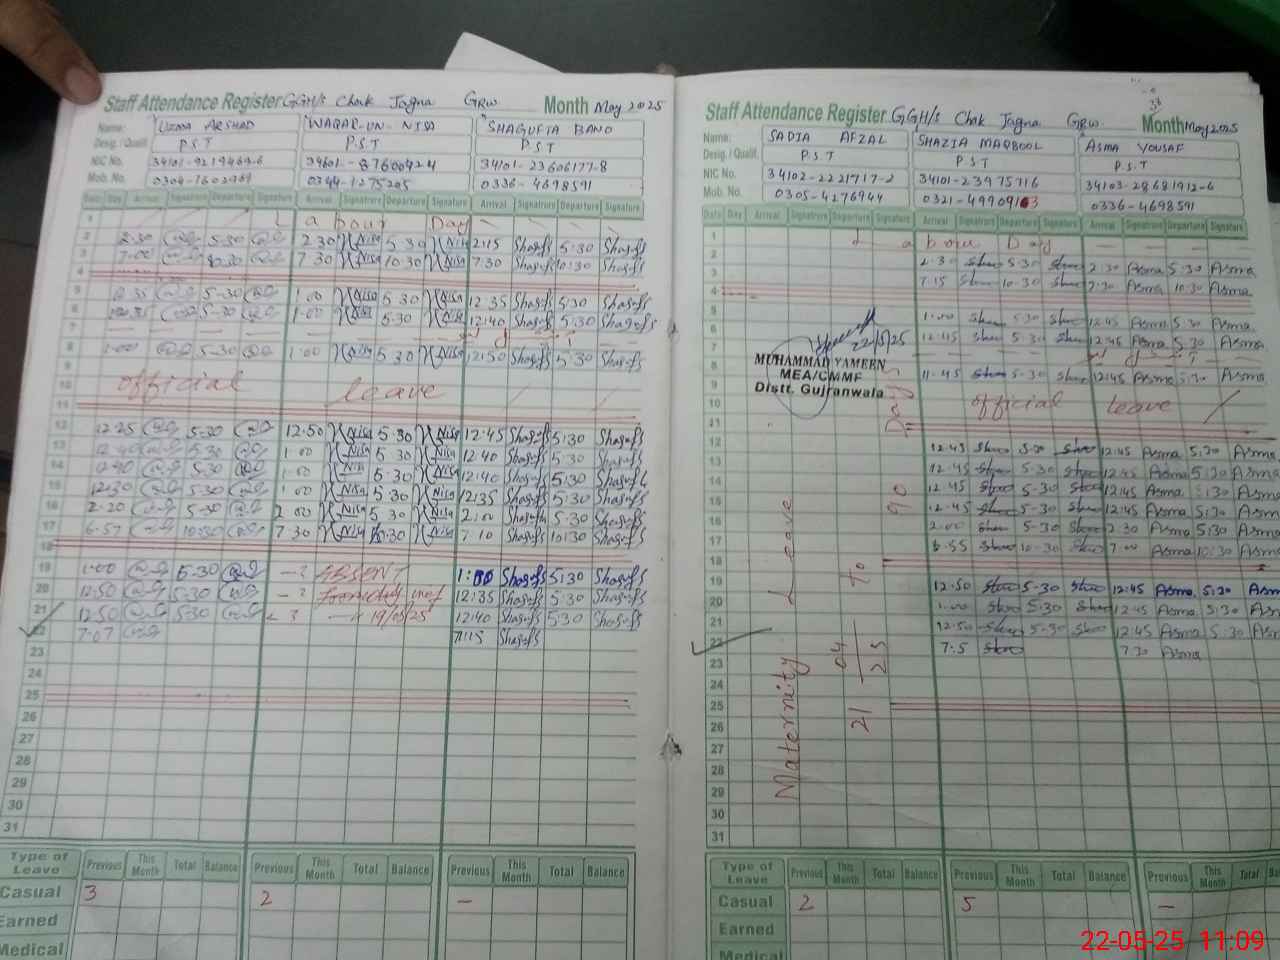 Staff Attendance Register GGH/s Chak Jagna GRW Month May 2025
Name: UZMA ARSHAD WAQAR-UN-NISA SHAGUFTA BANO
Desig. / Qualif. P.S.T P.S.T P.S.T
NIC No. 34101-9219469-6 34601-8760042-4 34101-2360617-8
Mob. No. 0304-1602961 0344-1275205 0336-4698591
Date Day Arrival Signature Departure Signature Arrival Signature Departure Signature Arrival Signature Departure Signature
1 Labour Day
2 2:30 5-30 2 30 Nisa 5 30 Nisa 2:15 Shaguft 5:30 Shaguft
3 7:00 10:30 7 30 Nisa 10 30 Nisa 7:30 Shaguft 10:30 Shaguft
4
5 12:35 5-30 1.00 Nisa 5 30 Nisa 12:35 Shaguft 5:30 Shaguft
6 12:35 5-30 1.00 Nisa 5 30 Nisa 12:40 Shaguft 5:30 Shaguft
7
8 1:00 5-30 1.00 Nisa 5 30 Nisa 12:50 Shaguft 5:30 Shaguft
9
10 official leave
11
12 12:25 5-30 12.50 Nisa 5 30 Nisa 12:45 Shaguft 5:30 Shaguft
13 12:40 5-30 1.00 Nisa 5 30 Nisa 12:40 Shaguft 5:30 Shaguft
14 12:40 5-30 1.00 Nisa 5 30 Nisa 12:40 Shaguft 5:30 Shaguft
15 12:30 5-30 1.00 Nisa 5 30 Nisa 12:35 Shaguft 5:30 Shaguft
16 2:20 5-30 2.00 Nisa 5 30 Nisa 2:00 Shaguft 5:30 Shaguft
17 6:57 10:30 7 30 Nisa 10:30 Nisa 7 10 Shaguft 10:30 Shaguft
18
19 1:00 5-30 ABSENT 1:00 Shaguft 5:30 Shaguft
20 12:50 5-30 12:35 Shaguft 5:30 Shaguft
21 12:50 5-30 19/05/25 12:40 Shaguft 5:30 Shaguft
22 7:07 7:15 Shaguft
23
24
25
26
27
28
29
30
31
Type of Leave Previous This Month Total Balance Previous This Month Total Balance Previous This Month Total Balance
Casual 3 2 –
Earned
Medical
Staff Attendance Register GGH/s Chak Jagna GRW Month May 2025
Name: SADIA AFZAL SHAZIA MAQBOOL ASMA YOUSAF
Desig. / Qualif. P.S.T P.S.T P.S.T
NIC No. 34102-2221717-2 34101-23975716 34103-28681912-6
Mob. No. 0305-4276944 0321-49909163 0336-4698591
Date Day Arrival Signature Departure Signature Arrival Signature Departure Signature Arrival Signature Departure Signature
1 Labour Day
2 2.30 5-30 2:30 Asma 5:30 Asma
3 7:15 10-30 7:30 Asma 10:30 Asma
4
5 1:00 5-30 12:45 Asma 5:30 Asma
6 12:45 5-30 12:45 Asma 5:30 Asma
7
8 11:45 5-30 12:45 Asma 5:30 Asma
22/5/25
MUHAMMAD YAMEEN
MEA/CMMF
Distt. Gujranwala
9
10 official leave
11
12 12:45 5:30 12:45 Asma 5:30 Asma
13 12:45 5-30 12:45 Asma 5:30 Asma
14 12:45 5-30 12:45 Asma 5:30 Asma
15 12:45 5-30 12:45 Asma 5:30 Asma
16 2:00 5-30 2:30 Asma 5:30 Asma
17 6:55 10-30 7:00 Asma 10:30 Asma
18
19 12:50 5-30 12:45 Asma 5:30 Asma
20 1:00 5:30 12:45 Asma 5:30 Asma
21 12:50 5-30 12:45 Asma 5:30 Asma
22 7:5 7:30 Asma
23
24
25
26
27
28
29
30
31
Maternity Leave
21 04/25 To 90 Days
Type of Leave Previous This Month Total Balance Previous This Month Total Balance Previous This Month
Casual 2 5 –
Earned
Medical
22-05-25 11:09